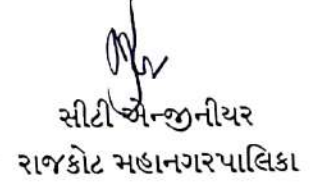 સીટી એન્જીનીયર
રાજકોટ મહાનગરપાલિકા